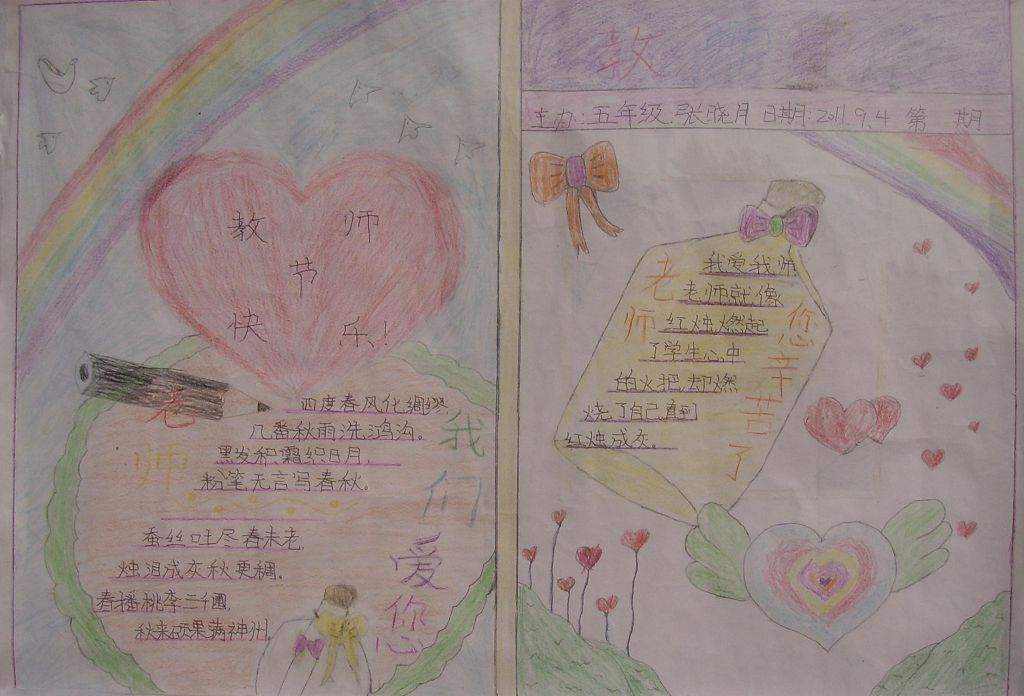 教师
节
快乐!
老师
我们爱你
四度春风化绸缪,
几番秋雨洗鸿沟。
黑发积霜织日月,
粉笔无言写春秋。
蚕丝吐尽春未老,
烛泪成灰秋更稠。
春播桃李三千圃,
秋来硕果满神州。
教师节
主办:五年级.张晓月 日期:2011.9.4 第 期
老师
您辛苦了
我爱我师
老师就像
红烛燃起
了学生心中
的火把,却燃
烧了自己直到
红烛成灰。